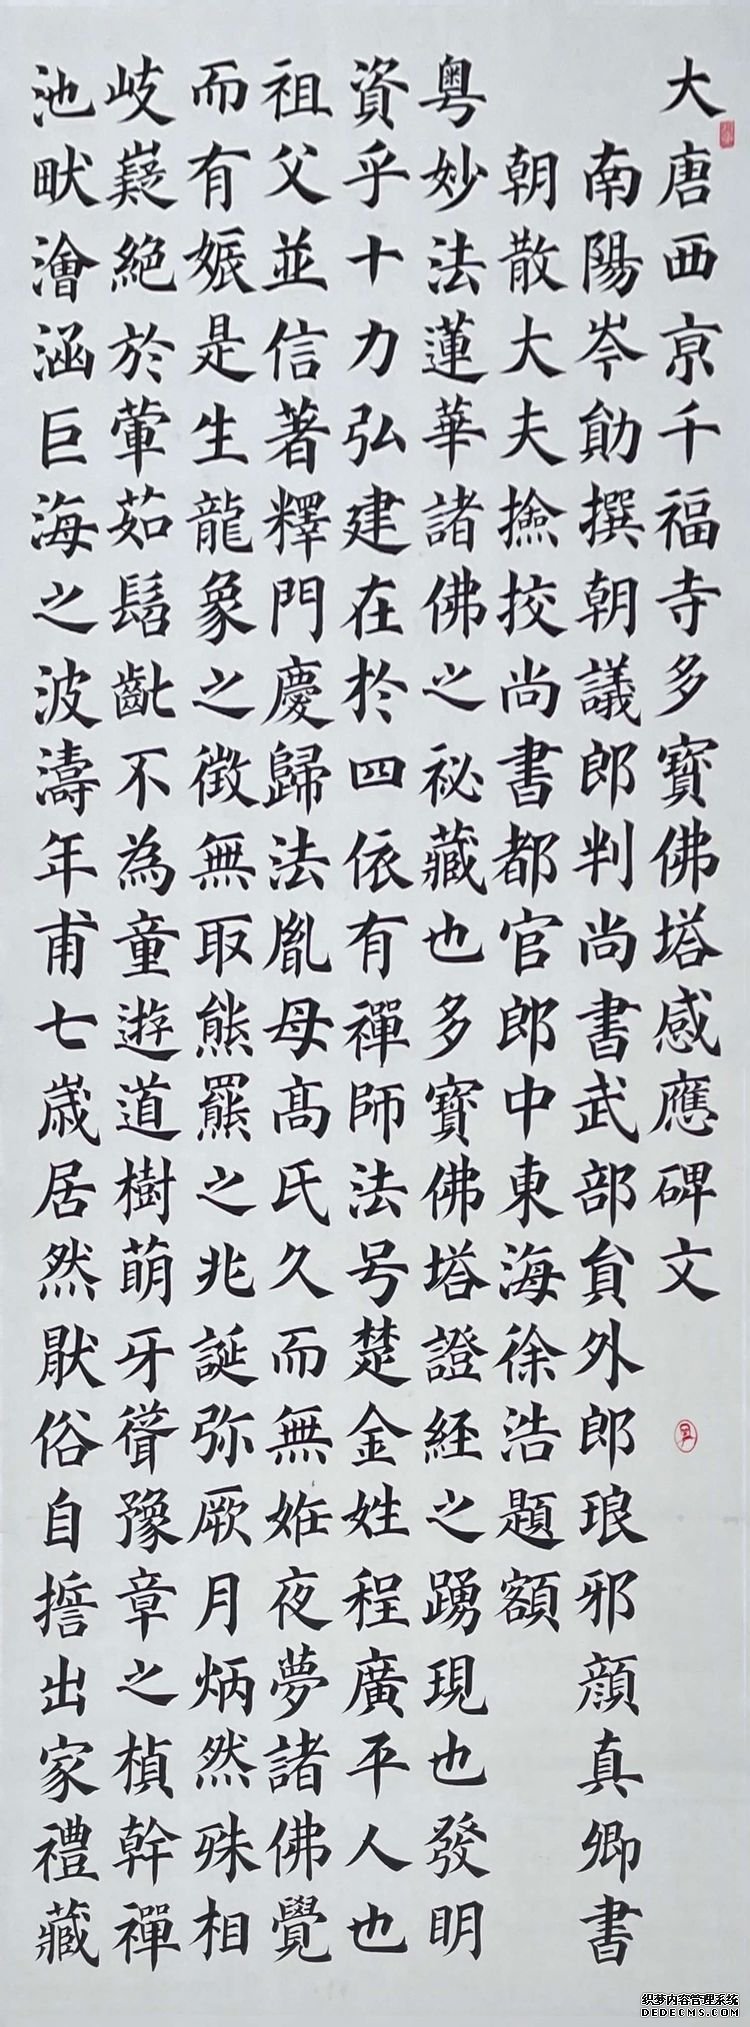 大唐西京千福寺多寶佛塔感應碑文
南陽岑勛撰朝議郎判尚書武部員外郎琅邪顏真卿書
朝散大夫撿挍尚書都官郎中東海徐浩題額
粵妙法蓮華諸佛之祕藏也多寶佛塔證経之踴現也發明
資乎十力弘建在於四依有禪師法号楚金姓程廣平人也
祖父並信著釋門慶歸法胤母高氏久而無姙夜夢諸佛覺
而有娠是生龍象之徴無取熊羆之兆誕弥厥月炳然殊相
岐嶷絶於葷茹髫齔不為童遊道樹萌牙聳豫章之楨幹禪
池畎澮涵巨海之波濤年甫七歳居然猒俗自誓出家禮藏
织梦内容管理系统
DEDECMS.COM